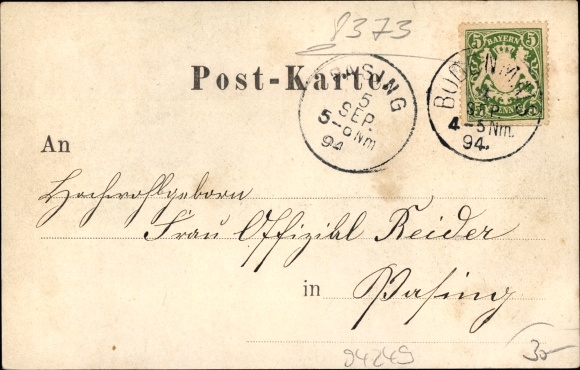 8373
5 BAYERN 5
Post-Karte
PASING
5
SEP.
5-6 Nm
94
SEP.
4-5 Nm.
94.
An
Hochwohlgeboren
Frau Offizial Reider
in Pasing
94249
30-